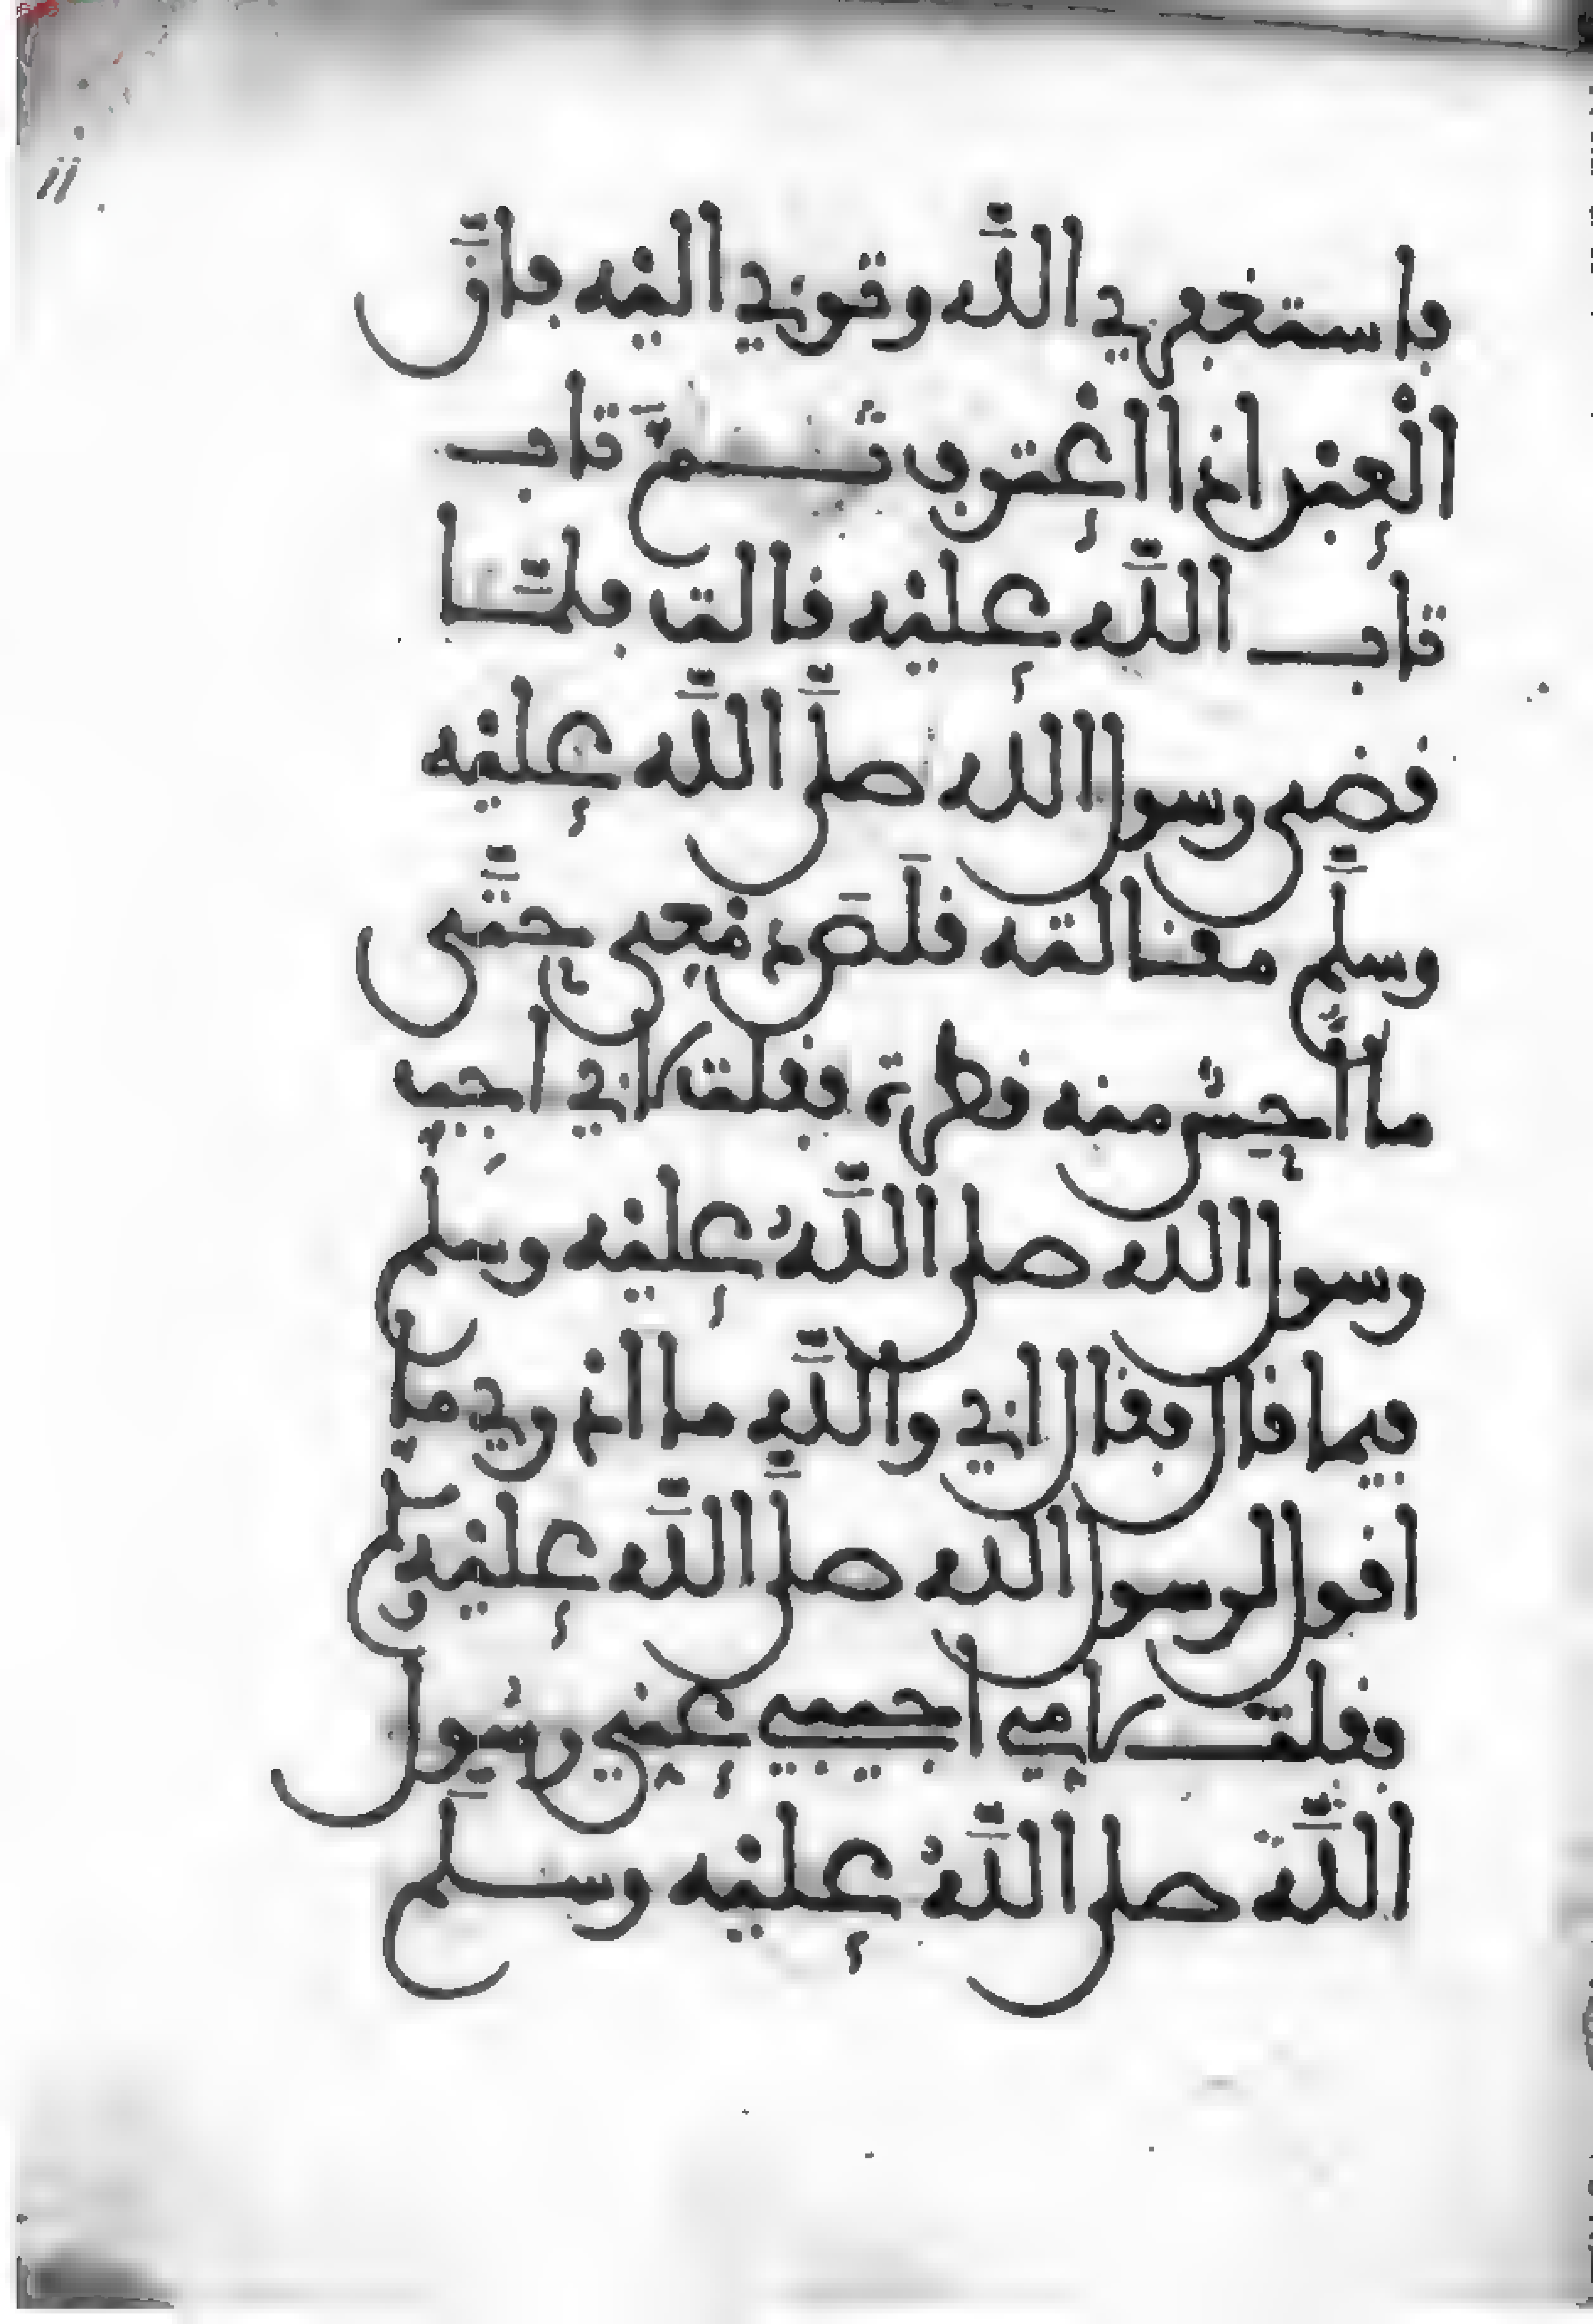 فاستغفري الله وتوبي اليه فإنّ
العبد اذا اعترف ثم تاب
تاب الله عليه قالت فلمّا
قضى رسول الله صلّى الله عليه
وسلّم مقالته قلص دمعي حتّى
ما أحسّ منه قطرة فقلت لابي اجب
رسول الله صلى اللهُ عليه وسلم
فيما قال فقال ابي واللّه ما ادري ما
اقول لرسول الله صلّى الله عليه وسلم
فقلت لامي اجيبي عني رسُول
الله صلى اللهُ عليه وسلّم